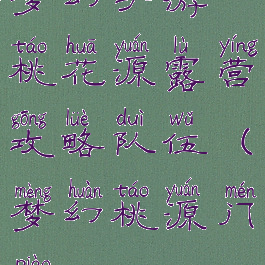 梦幻游
táo huā yuán lù yíng
桃花源露营
gōng lüè duì wǔ
攻略队伍（
mèng huàn táo yuán mén
梦幻桃源门
piào